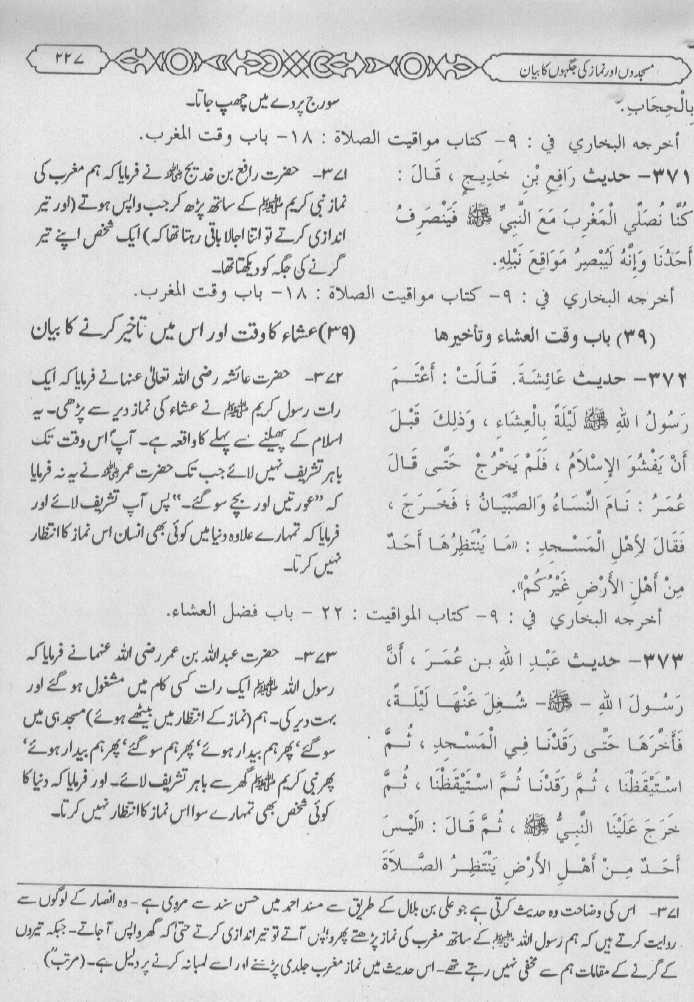 مسجدوں اور نماز کی جگہوں کا بیان
۲۲۷
بِالْحِجَابِ.
سورج پردے میں چھپ جاتا۔
أخرجه البخاري في : ٩- كتاب مواقيت الصلاة : ١٨- باب وقت المغرب.
٣٧١- حديث رَافِعِ بْنِ خَدِيجٍ ، قَالَ :
كُنَّا نُصَلِّي الْمَغْرِبَ مَعَ النَّبِيِّ ﷺ فَيَنْصَرِفُ
أَحَدُنَا وَإِنَّهُ لَيُبْصِرُ مَوَاقِعَ نَبْلِهِ.
۳۷۱- حضرت رافع بن خدیج رضی اللہ عنہ نے فرمایا کہ ہم مغرب کی
نماز نبی کریم ﷺ کے ساتھ پڑھ کر جب واپس ہوتے (اور تیر
اندازی کرتے تو اتنا اجالا باقی رہتا تھا کہ) ایک شخص اپنے تیر
گرنے کی جگہ کو دیکھتا تھا۔
أخرجه البخاري في : ٩- كتاب مواقيت الصلاة : ١٨- باب وقت المغرب.
(٣٩) باب وقت العشاء وتأخيرها
(۳۹) عشاء کا وقت اور اس میں تاخیر کرنے کا بیان
٣٧٢- حديث عَائِشَةَ. قَالَتْ : أَعْتَمَ
رَسُولُ اللهِ ﷺ لَيْلَةً بِالْعِشَاءِ ، وَذلِكَ قَبْلَ
أَنْ يَفْشُوَ الإِسْلاَمُ ، فَلَمْ يَخْرُجْ حَتَّى قَالَ
عُمَرُ : نَامَ النِّسَاءُ وَالصِّبْيَانُ ؛ فَخَرَجَ ،
فَقَالَ لِأَهْلِ الْمَسْجِدِ : «مَا يَنْتَظِرُهَا أَحَدٌ
مِنْ أَهْلِ الأَرْضِ غَيْرُكُمْ».
۳۷۲- حضرت عائشہ رضی اللہ تعالیٰ عنہا نے فرمایا کہ ایک
رات رسول کریم ﷺ نے عشاء کی نماز دیر سے پڑھی۔ یہ
اسلام کے پھیلنے سے پہلے کا واقعہ ہے۔ آپ اس وقت تک
باہر تشریف نہیں لائے جب تک حضرت عمر رضی اللہ عنہ نے یہ نہ فرمایا
کہ ”عورتیں اور بچے سو گئے۔“ پس آپ تشریف لائے اور
فرمایا کہ تمہارے علاوہ دنیا میں کوئی بھی انسان اس نماز کا انتظار
نہیں کرتا۔
أخرجه البخاري في : ٩- كتاب المواقيت : ٢٢ - باب فضل العشاء.
٣٧٣- حديث عَبْدِ اللهِ بن عُمَرَ ، أَنَّ
رَسُولَ اللهِ - ﷺ - شُغِلَ عَنْهَا لَيْلَةً،
فَأَخَّرَهَا حَتَّى رَقَدْنَا فِي الْمَسْجِدِ ، ثُمَّ
اسْتَيْقَظْنَا ، ثُمَّ رَقَدْنَا ثُمَّ اسْتَيْقَظْنَا ، ثُمَّ
خَرَجَ عَلَيْنَا النَّبِيُّ ﷺ ، ثُمَّ قَالَ : «لَيْسَ
أَحَدٌ مِنْ أَهْلِ الأَرْضِ يَنْتَظِرُ الصَّلاَةَ
۳۷۳- حضرت عبداللہ بن عمر رضی اللہ عنہما نے فرمایا کہ
رسول اللہ ﷺ ایک رات کسی کام میں مشغول ہو گئے اور
بہت دیر کی۔ ہم (نماز کے انتظار میں بیٹھے ہوئے) مسجد ہی میں
سو گئے‘ پھر ہم بیدار ہوئے‘ پھر ہم سو گئے‘ پھر ہم بیدار ہوئے‘
پھر نبی کریم ﷺ گھر سے باہر تشریف لائے۔ اور فرمایا کہ دنیا کا
کوئی شخص بھی تمہارے سوا اس نماز کا انتظار نہیں کرتا۔
۳۷۱- اس کی وضاحت وہ حدیث کرتی ہے جو علی بن بلال کے طریق سے مسند احمد میں حسن سند سے مروی ہے - وہ انصار کے لوگوں سے
روایت کرتے ہیں کہ ہم رسول اللہ ﷺ کے ساتھ مغرب کی نماز پڑھتے پھر واپس آتے تو تیر اندازی کرتے حتیٰ کہ گھر واپس آ جاتے۔ جبکہ تیروں
کے گرنے کے مقامات ہم سے مخفی نہیں رہتے تھے۔ اس حدیث میں نماز مغرب جلدی پڑھنے اور اسے لمبا نہ کرنے پر دلیل ہے۔ (مرتب)